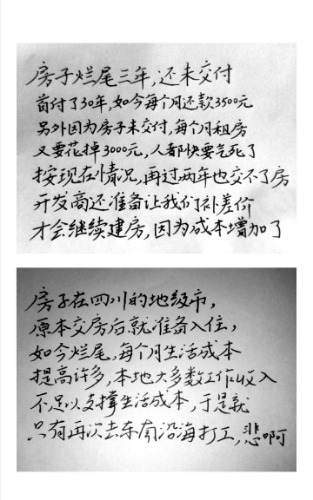 房子烂尾三年,还未交付
首付了30年,如今每个月还款3500元
另外因为房子未交付,每个月租房
又要花掉3000元,人都快要气死了
按现在情况,再过两年也交不了房
开发商还准备让我们补差价
才会继续建房,因为成本增加了
房子在四川的地级市,
原本交房后就准备入住,
如今烂尾,每个月生活成本
提高许多,本地大多数工作收入
不足以支撑生活成本,于是就
只有再次去东南沿海打工,悲啊